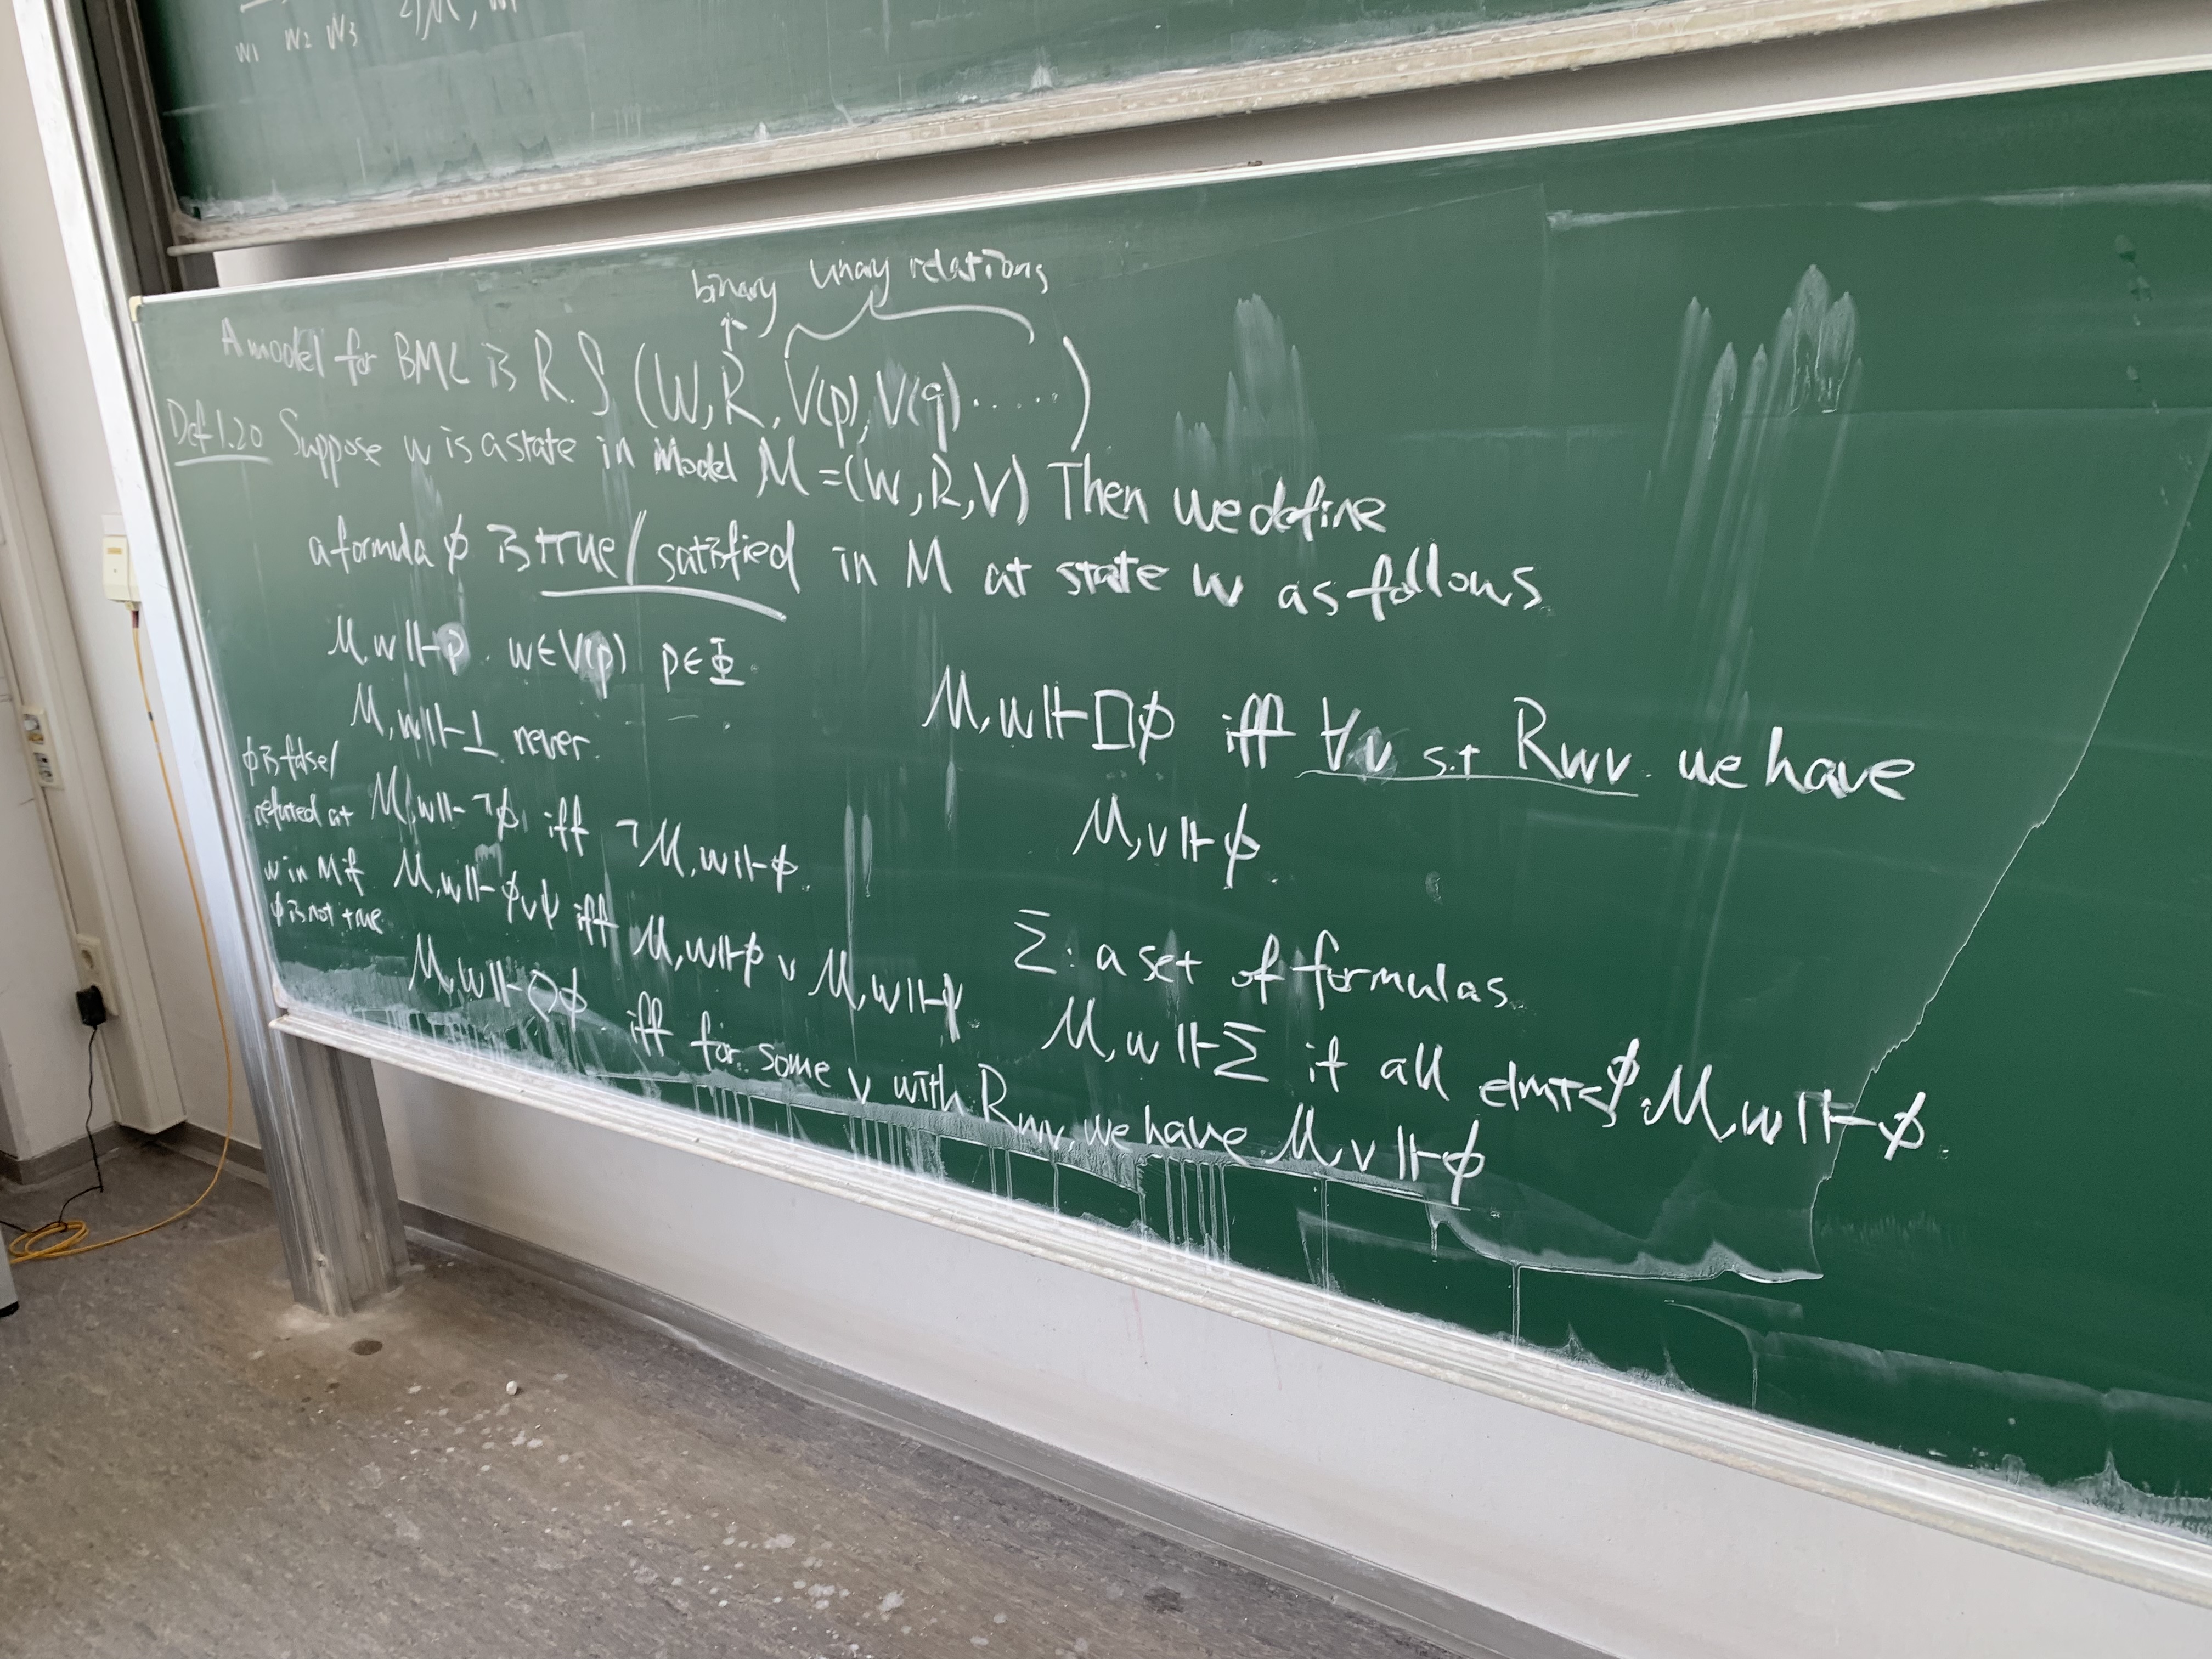 W1 W2 W3
binary unary relations
A model for BML is R.S (W, R, V(p), V(q) ......)
Def 1.20 Suppose w is a state in Model M = (W, R, V) Then we define
a formula ϕ is true / satisfied in M at state w as follows
M, w ⊩ p . w ∈ V(p) p ∈ Φ
M, w ⊩ ⊥ never.
ϕ is false/
refuted at
w in M if
ϕ is not true
M, w ⊩ ¬ϕ iff ¬M, w ⊩ ϕ.
M, w ⊩ ϕ ∨ ψ iff M, w ⊩ ϕ ∨ M, w ⊩ ψ
M, w ⊩ ◇ϕ iff for some v with Rwv, we have M, v ⊩ ϕ
M, w ⊩ □ϕ iff ∀v s.t Rwv. we have
M, v ⊩ ϕ.
Σ: a set of formulas.
M, w ⊩ Σ if all elmts ϕ. M, w ⊩ ϕ.